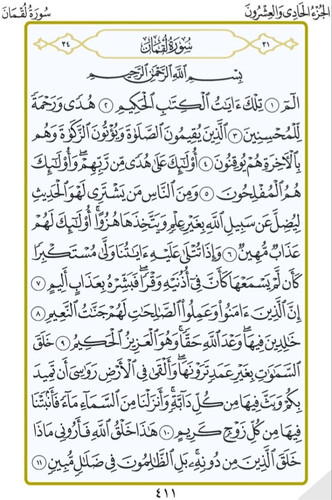 الجزء الحادي والعشرون سورة لقمان
٣١ سورة لقمان ٣٤
بسم الله الرحمن الرحيم
الٓمٓ ١ تِلْكَ ءَايَٰتُ ٱلْكِتَٰبِ ٱلْحَكِيمِ ٢ هُدًى وَرَحْمَةً
لِّلْمُحْسِنِينَ ٣ ٱلَّذِينَ يُقِيمُونَ ٱلصَّلَوٰةَ وَيُؤْتُونَ ٱلزَّكَوٰةَ وَهُم
بِٱلْأٓخِرَةِ هُمْ يُوقِنُونَ ٤ أُو۟لَٰٓئِكَ عَلَىٰ هُدًى مِّن رَّبِّهِمْ ۖ وَأُو۟لَٰٓئِكَ
هُمُ ٱلْمُفْلِحُونَ ٥ وَمِنَ ٱلنَّاسِ مَن يَشْتَرِى لَهْوَ ٱلْحَدِيثِ
لِيُضِلَّ عَن سَبِيلِ ٱللَّهِ بِغَيْرِ عِلْمٍ وَيَتَّخِذَهَا هُزُوًا ۚ أُو۟لَٰٓئِكَ لَهُمْ
عَذَابٌ مُّهِينٌ ٦ وَإِذَا تُتْلَىٰ عَلَيْهِ ءَايَٰتُنَا وَلَّىٰ مُسْتَكْبِرًا
كَأَن لَّمْ يَسْمَعْهَا كَأَنَّ فِىٓ أُذُنَيْهِ وَقْرًا ۖ فَبَشِّرْهُ بِعَذَابٍ أَلِيمٍ ٧
إِنَّ ٱلَّذِينَ ءَامَنُوا۟ وَعَمِلُوا۟ ٱلصَّٰلِحَٰتِ لَهُمْ جَنَّٰتُ ٱلنَّعِيمِ ٨
خَٰلِدِينَ فِيهَا ۖ وَعْدَ ٱللَّهِ حَقًّا ۚ وَهُوَ ٱلْعَزِيزُ ٱلْحَكِيمُ ٩ خَلَقَ
ٱلسَّمَٰوَٰتِ بِغَيْرِ عَمَدٍ تَرَوْنَهَا ۖ وَأَلْقَىٰ فِى ٱلْأَرْضِ رَوَٰسِىَ أَن تَمِيدَ
بِكُمْ وَبَثَّ فِيهَا مِن كُلِّ دَآبَّةٍ ۚ وَأَنزَلْنَا مِنَ ٱلسَّمَآءِ مَآءً فَأَنۢبَتْنَا
فِيهَا مِن كُلِّ زَوْجٍ كَرِيمٍ ١٠ هَٰذَا خَلْقُ ٱللَّهِ فَأَرُونِى مَاذَا
خَلَقَ ٱلَّذِينَ مِن دُونِهِۦ ۚ بَلِ ٱلظَّٰلِمُونَ فِى ضَلَٰلٍ مُّبِينٍ ١١
٤١١